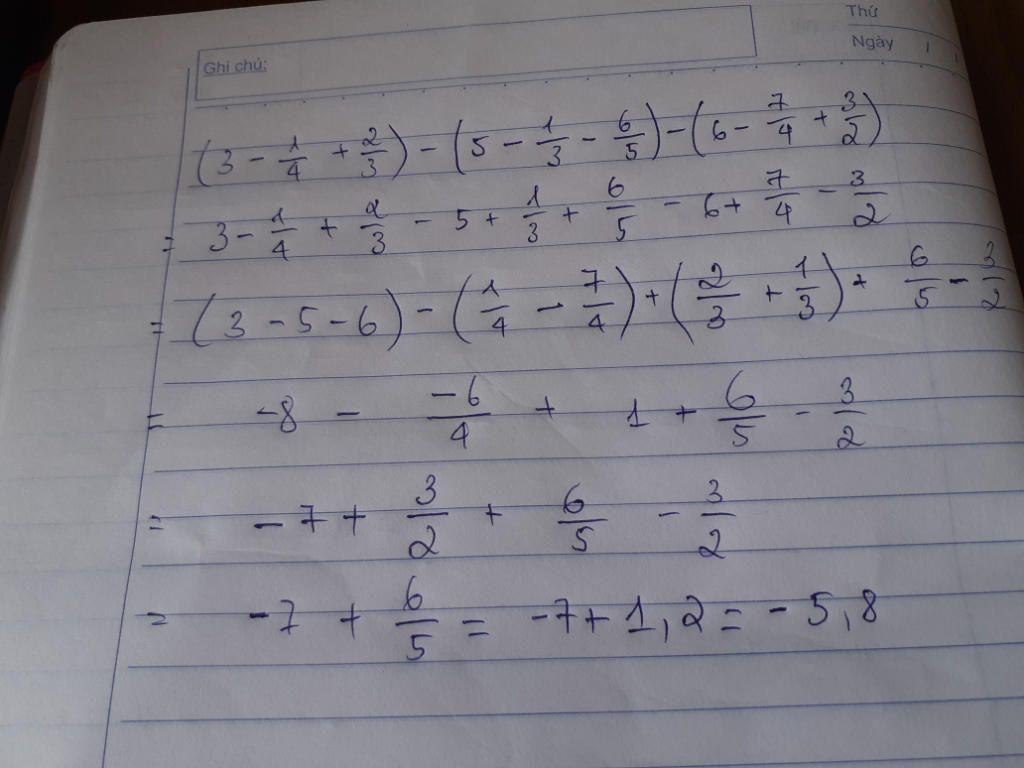 Thứ
Ngày
Ghi chú:
(3 - 1/4 + 2/3) - (5 - 1/3 - 6/5) - (6 - 7/4 + 3/2)
= 3 - 1/4 + 2/3 - 5 + 1/3 + 6/5 - 6 + 7/4 - 3/2
= (3 - 5 - 6) - (1/4 - 7/4) + (2/3 + 1/3) + 6/5 - 3/2
= -8 - -6/4 + 1 + 6/5 - 3/2
= -7 + 3/2 + 6/5 - 3/2
= -7 + 6/5 = -7 + 1,2 = -5,8